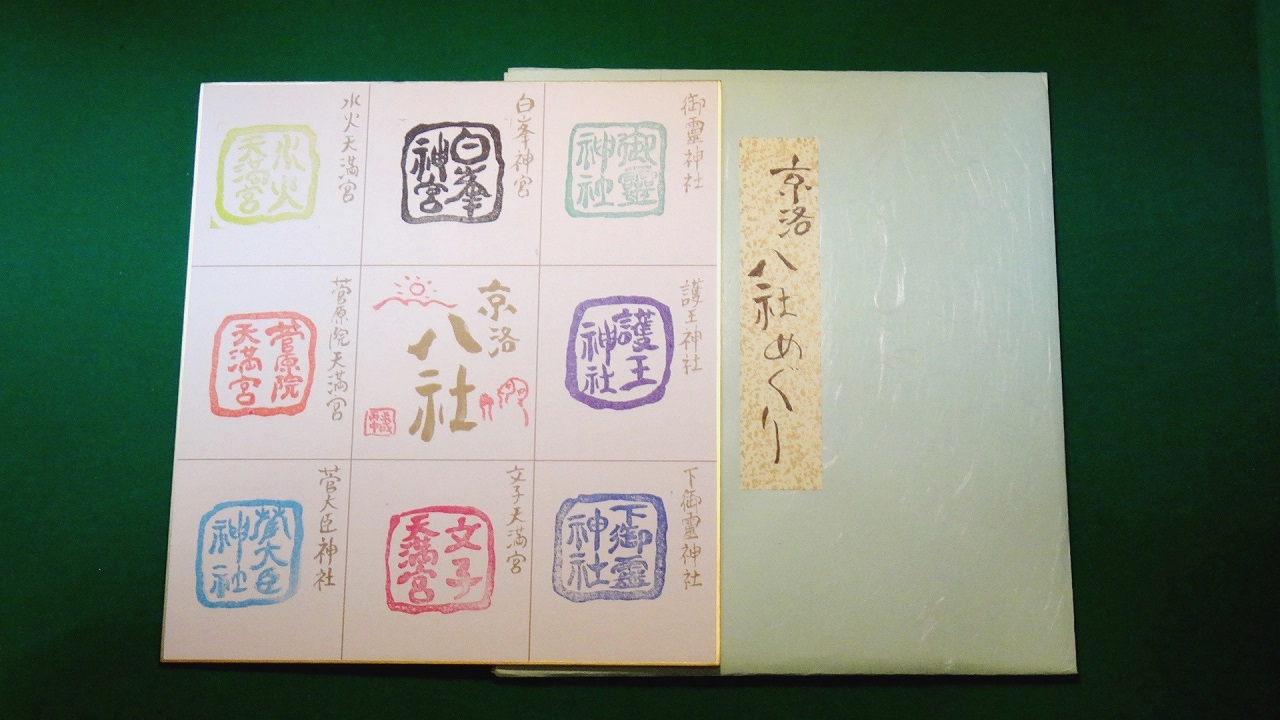 御靈神社
御靈
神社
白峯神宮
白峯
神宮
水火天満宮
水火
天満宮
護王神社
護王
神社
京洛
八社
菅原院天満宮
菅原院
天満宮
下御靈神社
下御靈
神社
文子天満宮
文子
天満宮
菅大臣神社
菅大臣
神社
京洛
八社めぐり